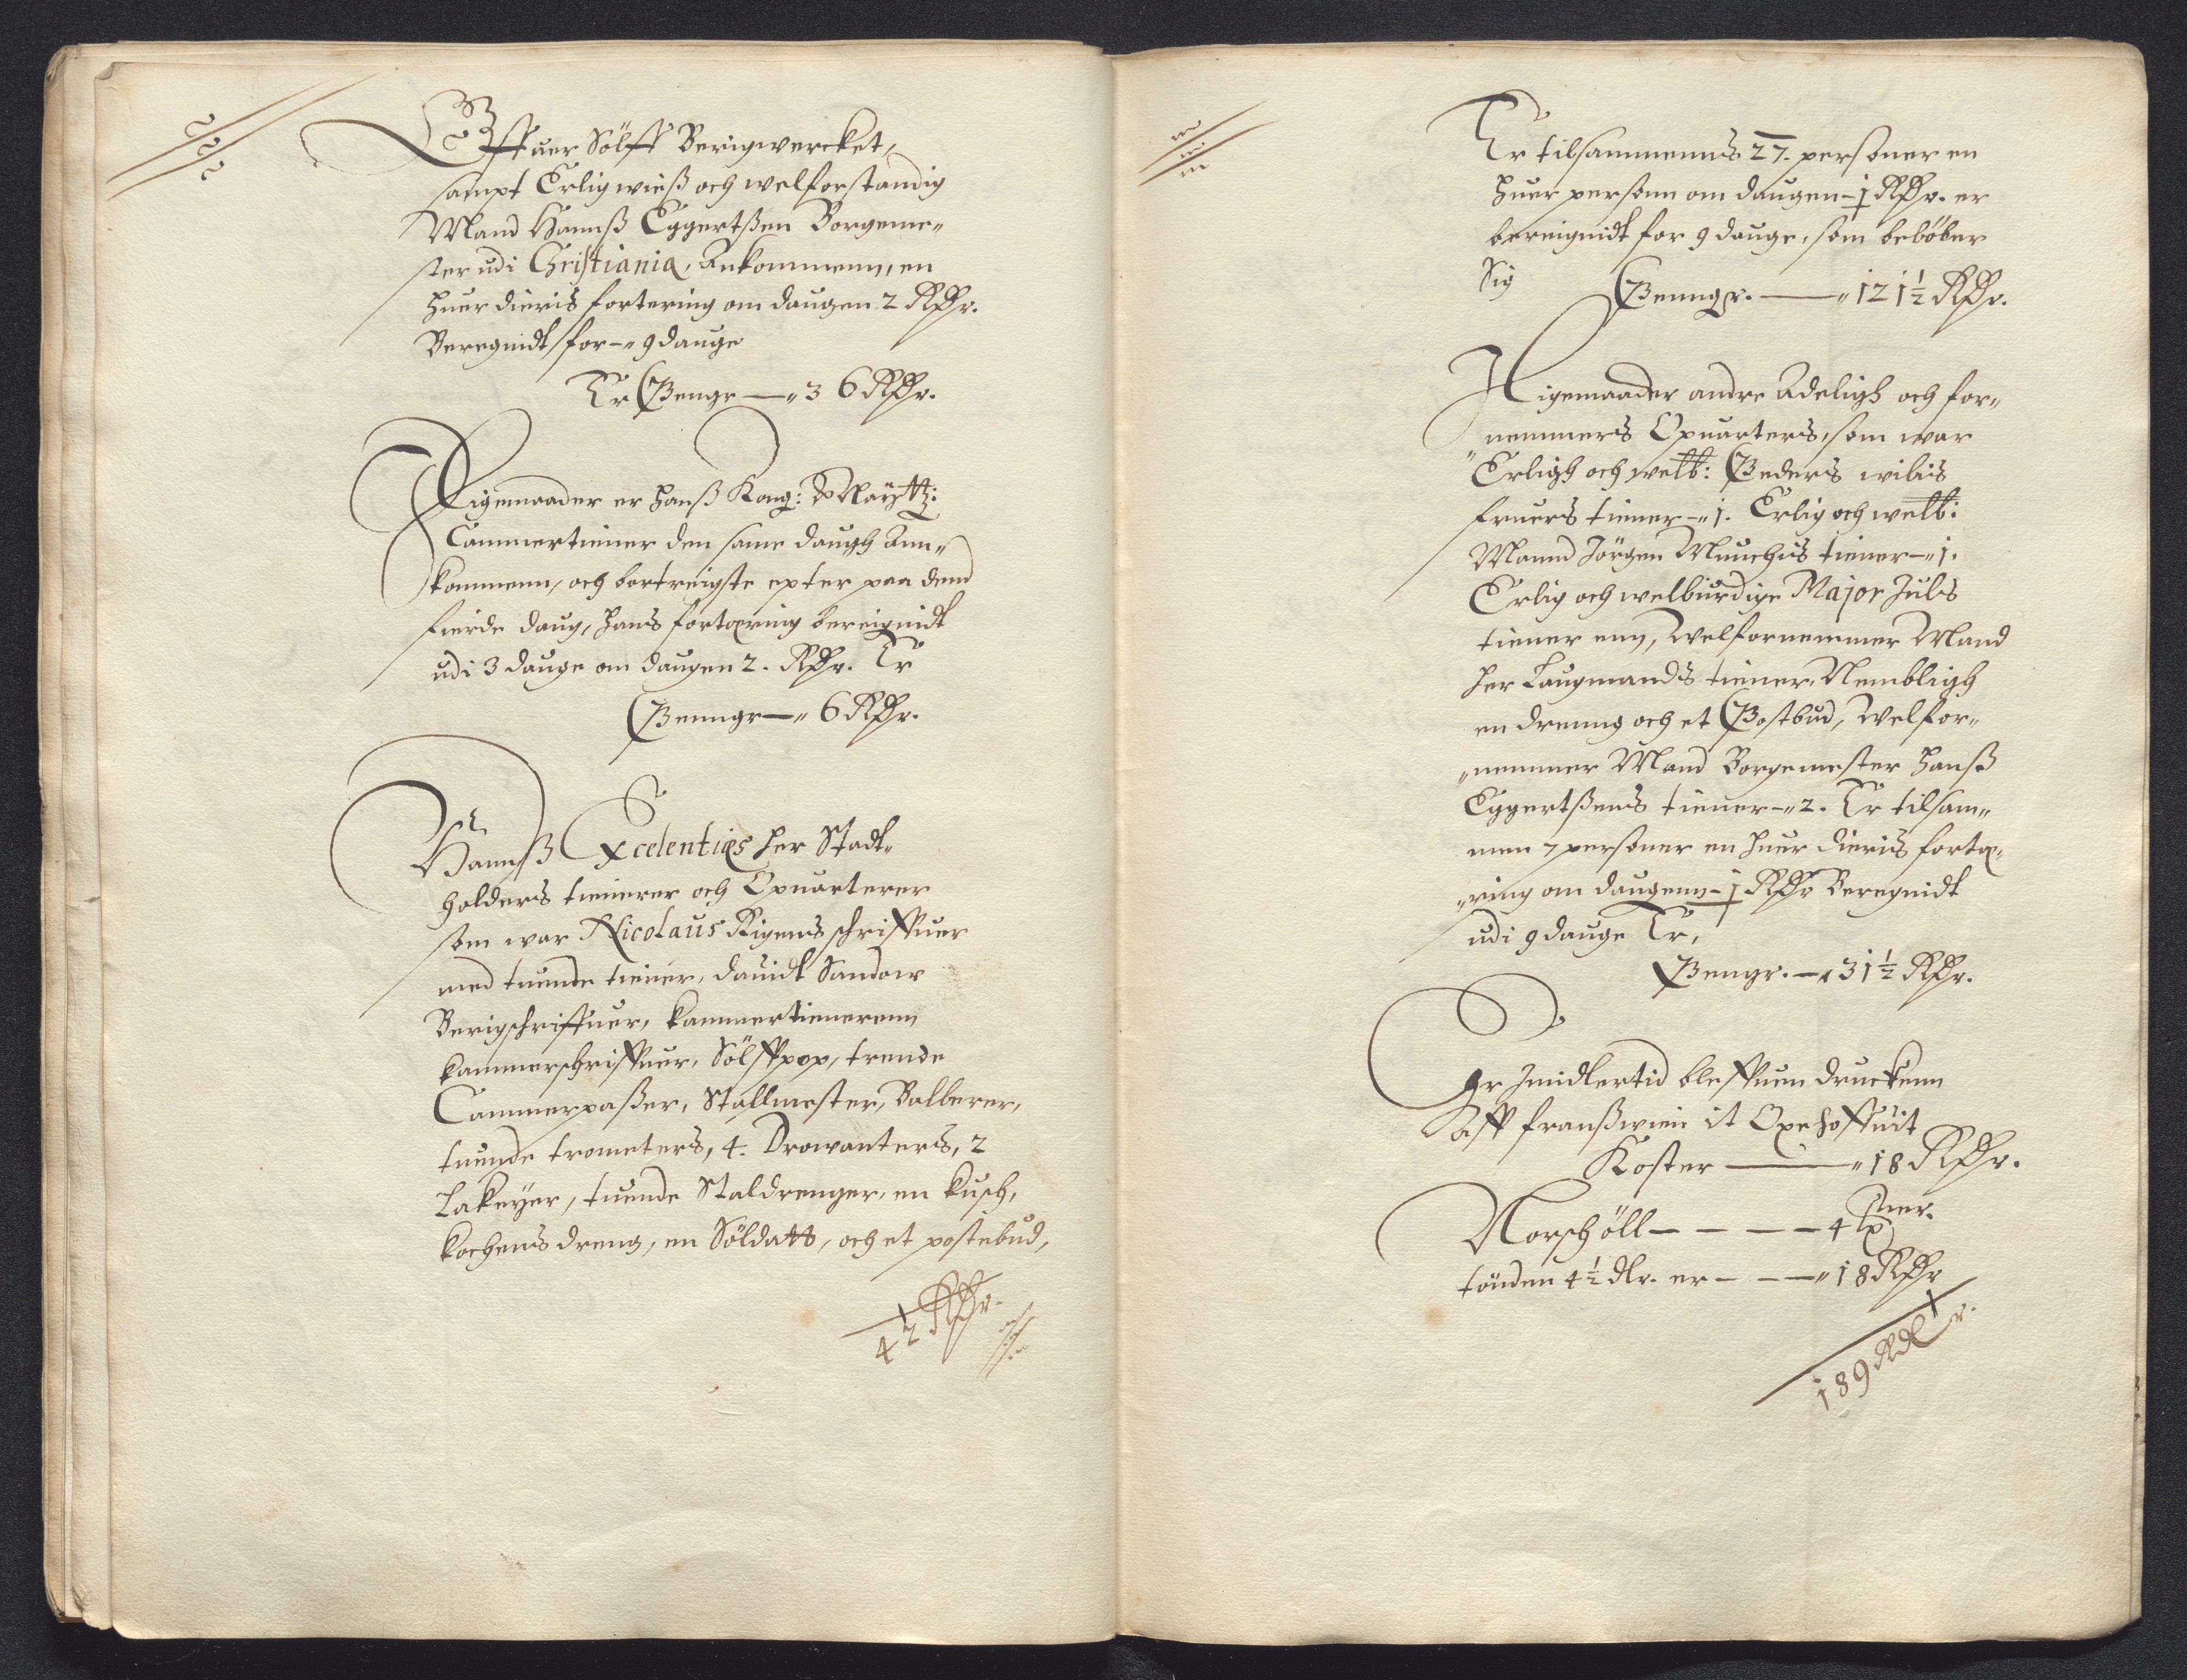 Offuer Sölff Berigwercket,
sampt Erlig wieß och welforstandig
Mand Hannß Eggertßen Borgeme„
ster udi Christiania, Ankommenn, en
huer dieris fortering om daugen 2 RDr.
Beregnidt for —„ 9 dauge
Er Penge —„ 36 RDr.
Ligemaader er Hanß Kong: Maÿtt:
Cammertiener den same daugh Ann„
kommenn, och bortreigste epter paa dend
fierde daug, hans fortæring bereignidt
udi 3 dauge om daugen 2. RDr. Er
Pennge —„ 6 RDr.
Hannß Excelenties her Stadt„
holders tienerer och Opuarterer
som war Nicolaus Rigens schriffuer
med tuende tiener, dauidt Sandow
Berigschriffuer, kammertienerenn
kammerschriffuer, Sölffpop, trende
Cammerpaßer, Stallmester, Balberer,
tuende trometers, 4. Drowanters, 2
Lakeyer, tuende Staldrenger, en kusch,
kochens dreng, en Söldatt, och et postebud,
42 RDr.
Er tilsammenns 27. personer en
huer personn om daugen — ½ RDr. er
bereignidt for 9 dauge, som beböber
Sig Penngr. —„ 121½ RDr.
Ligemaader andre Adeligh och for„
nemmers Opuarters, som war
Erligh och welb: Peders wibis
fruers tiener —„ 1. Erlig och welb:
Mannd Jörgen Munchis tiener —„ 1.
Erlig och welbiurdige Major Juls
tiener enn, Welfornemmer Mand
her Laugmands tiener, Nembligh
en drenng och et Postbud, Welfor„
„nemmer Mand Borgemester Hanß
Eggertßens tiener —„ 2. Er tilsam„
men 7 personer en huer dieris fortæ„
„ring om daugenn — ½ RDr Beregnidt
udi 9 dauge Er,
Pengr. —„ 31½ RDr.
Er Imidlertid bleffuen druckenn
Aff franßwien it Oxehoffuit
Koster —„ 18 RDr.
Norsch öll — — — — 4 tner.
tönden 4½ dlr. er — — —„ 18 RDr
189 Rdlr.